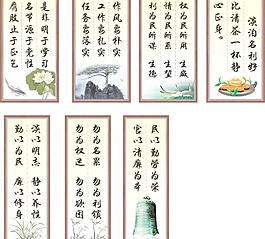 是非明于学习
名节源于党性
腐败止于正气
作风需朴实
工作需扎实
任务需落实
权为民所用 生威
情为民所系 生望
利为民所谋 生德
淡泊名利好
比清茶一杯静
心正身。
淡以明志 静以养性
勤以为民 廉以修身
勿为名累 勿为利锁
勿为权迷 勿为欲困
民以勤劳为荣
官以清廉为本